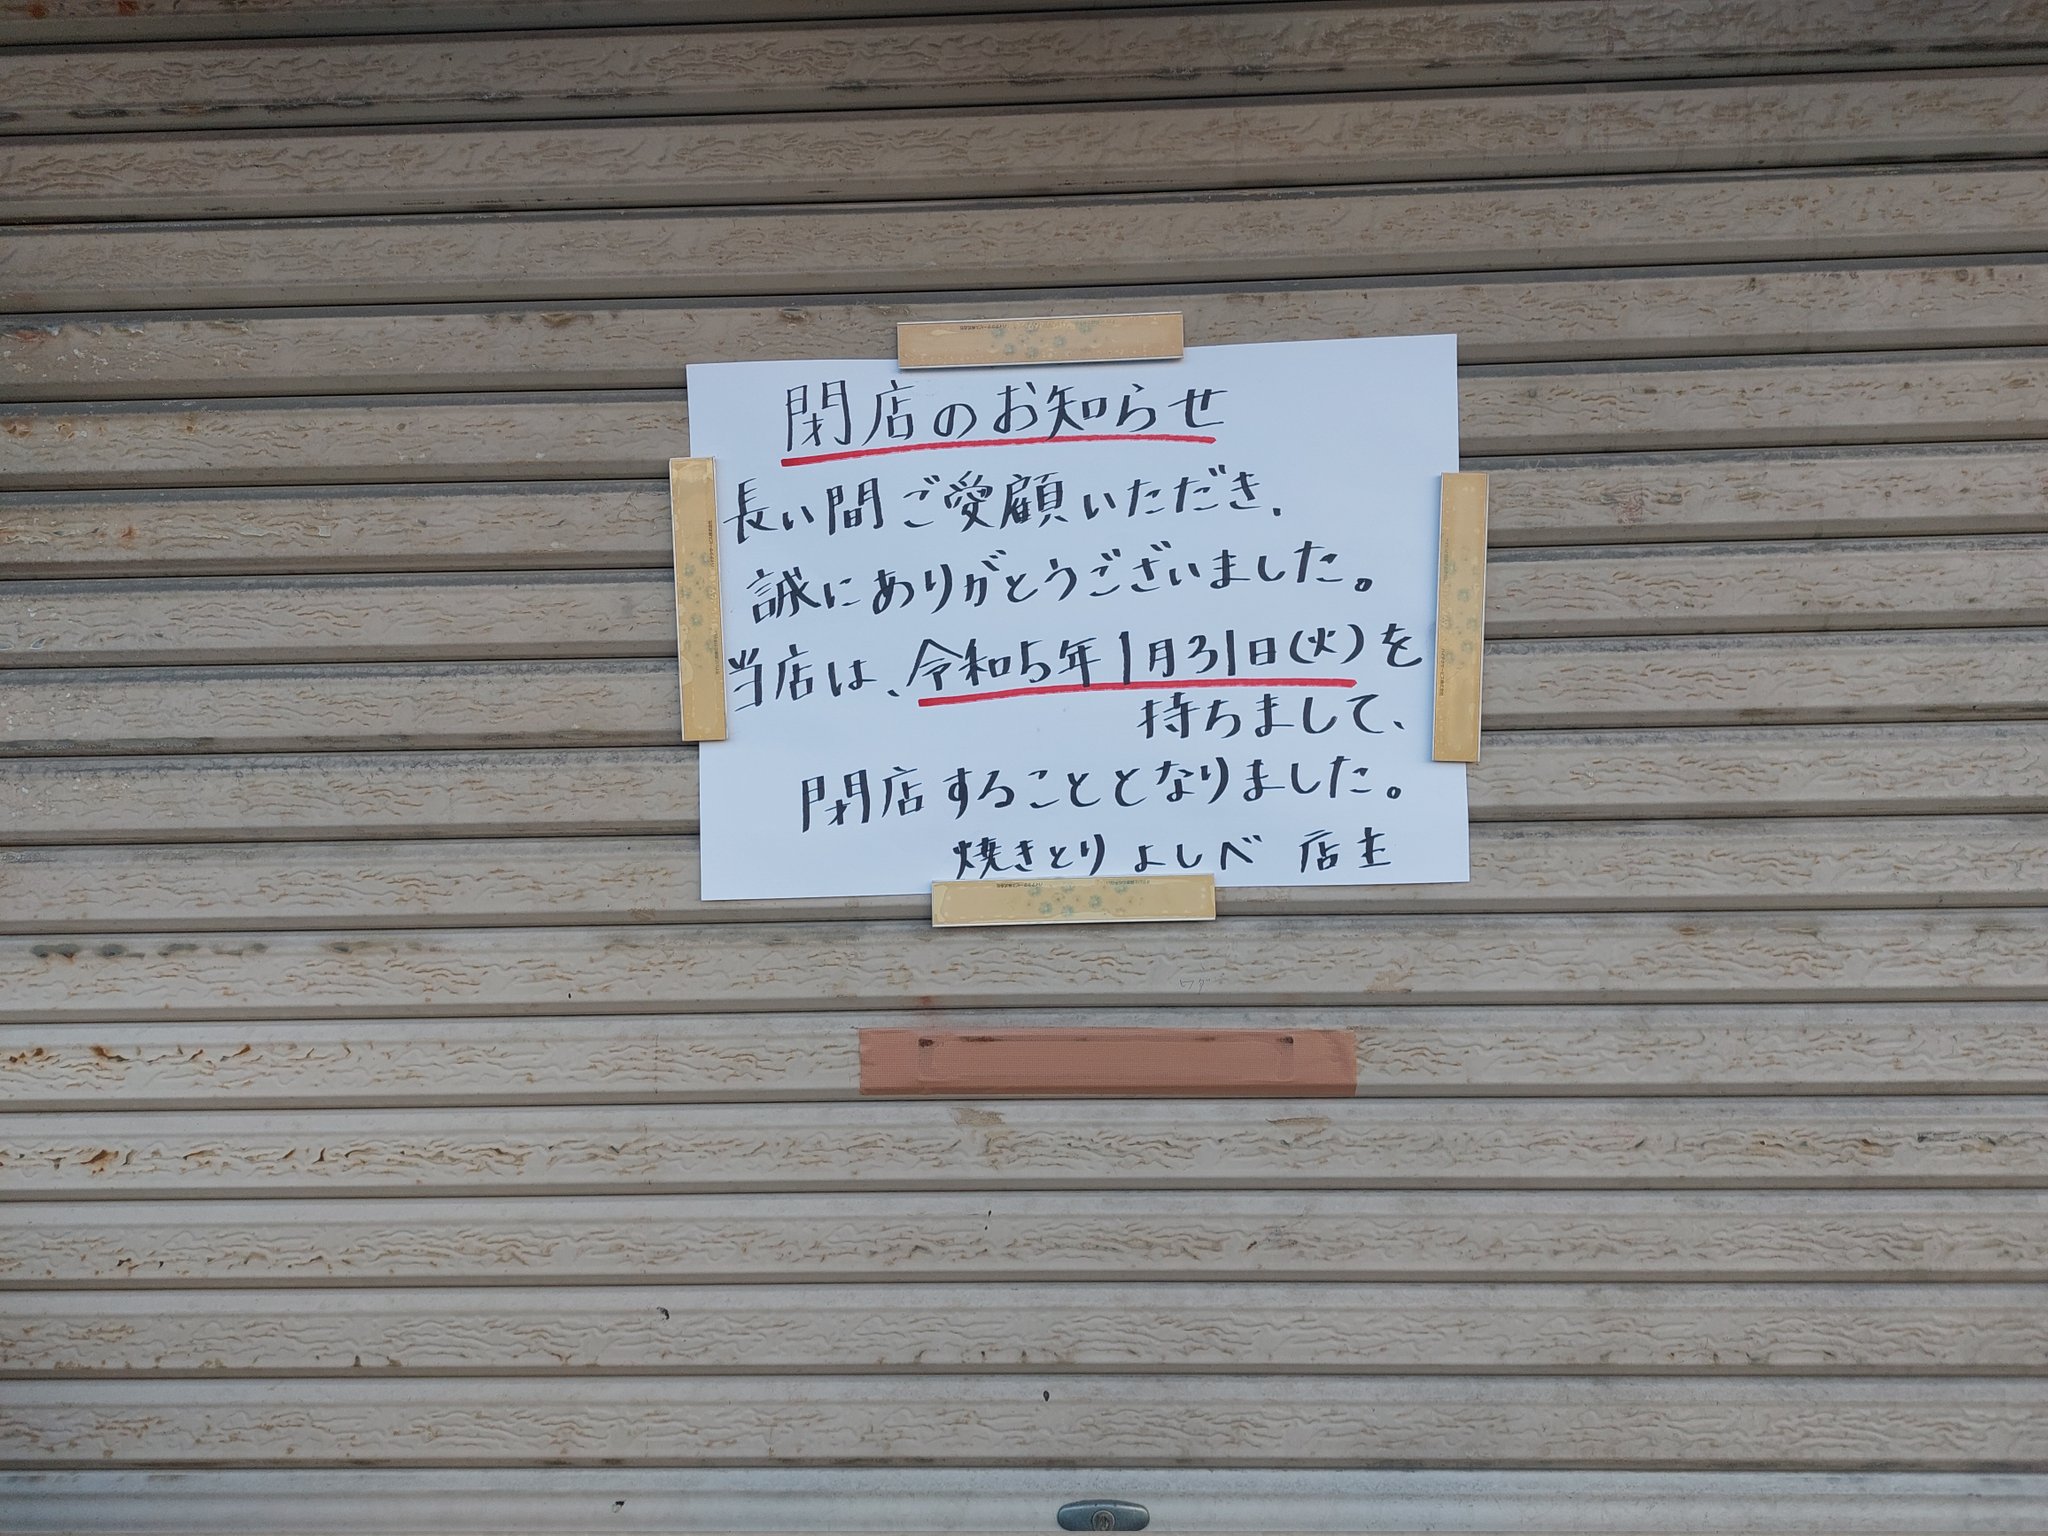 閉店のお知らせ
長い間ご愛顧いただき、
誠にありがとうございました。
当店は、令和5年1月31日(火)を
持ちまして、
閉店することとなりました。
焼きとり よしべ 店主